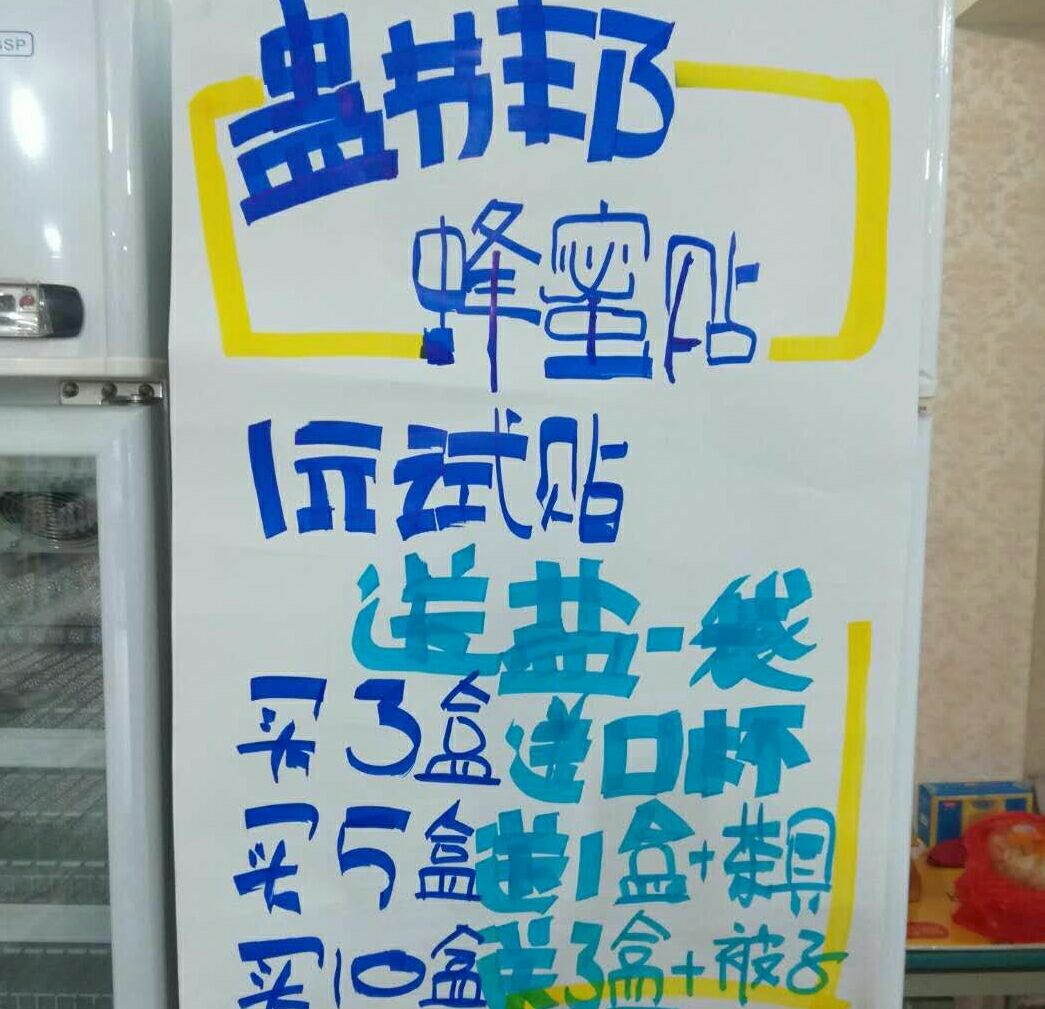 蛊节邦
蜂蜜贴
1元试贴
送盐一袋
买3盒送口杯
买5盒送1盒+茶具
买10盒送3盒+被子